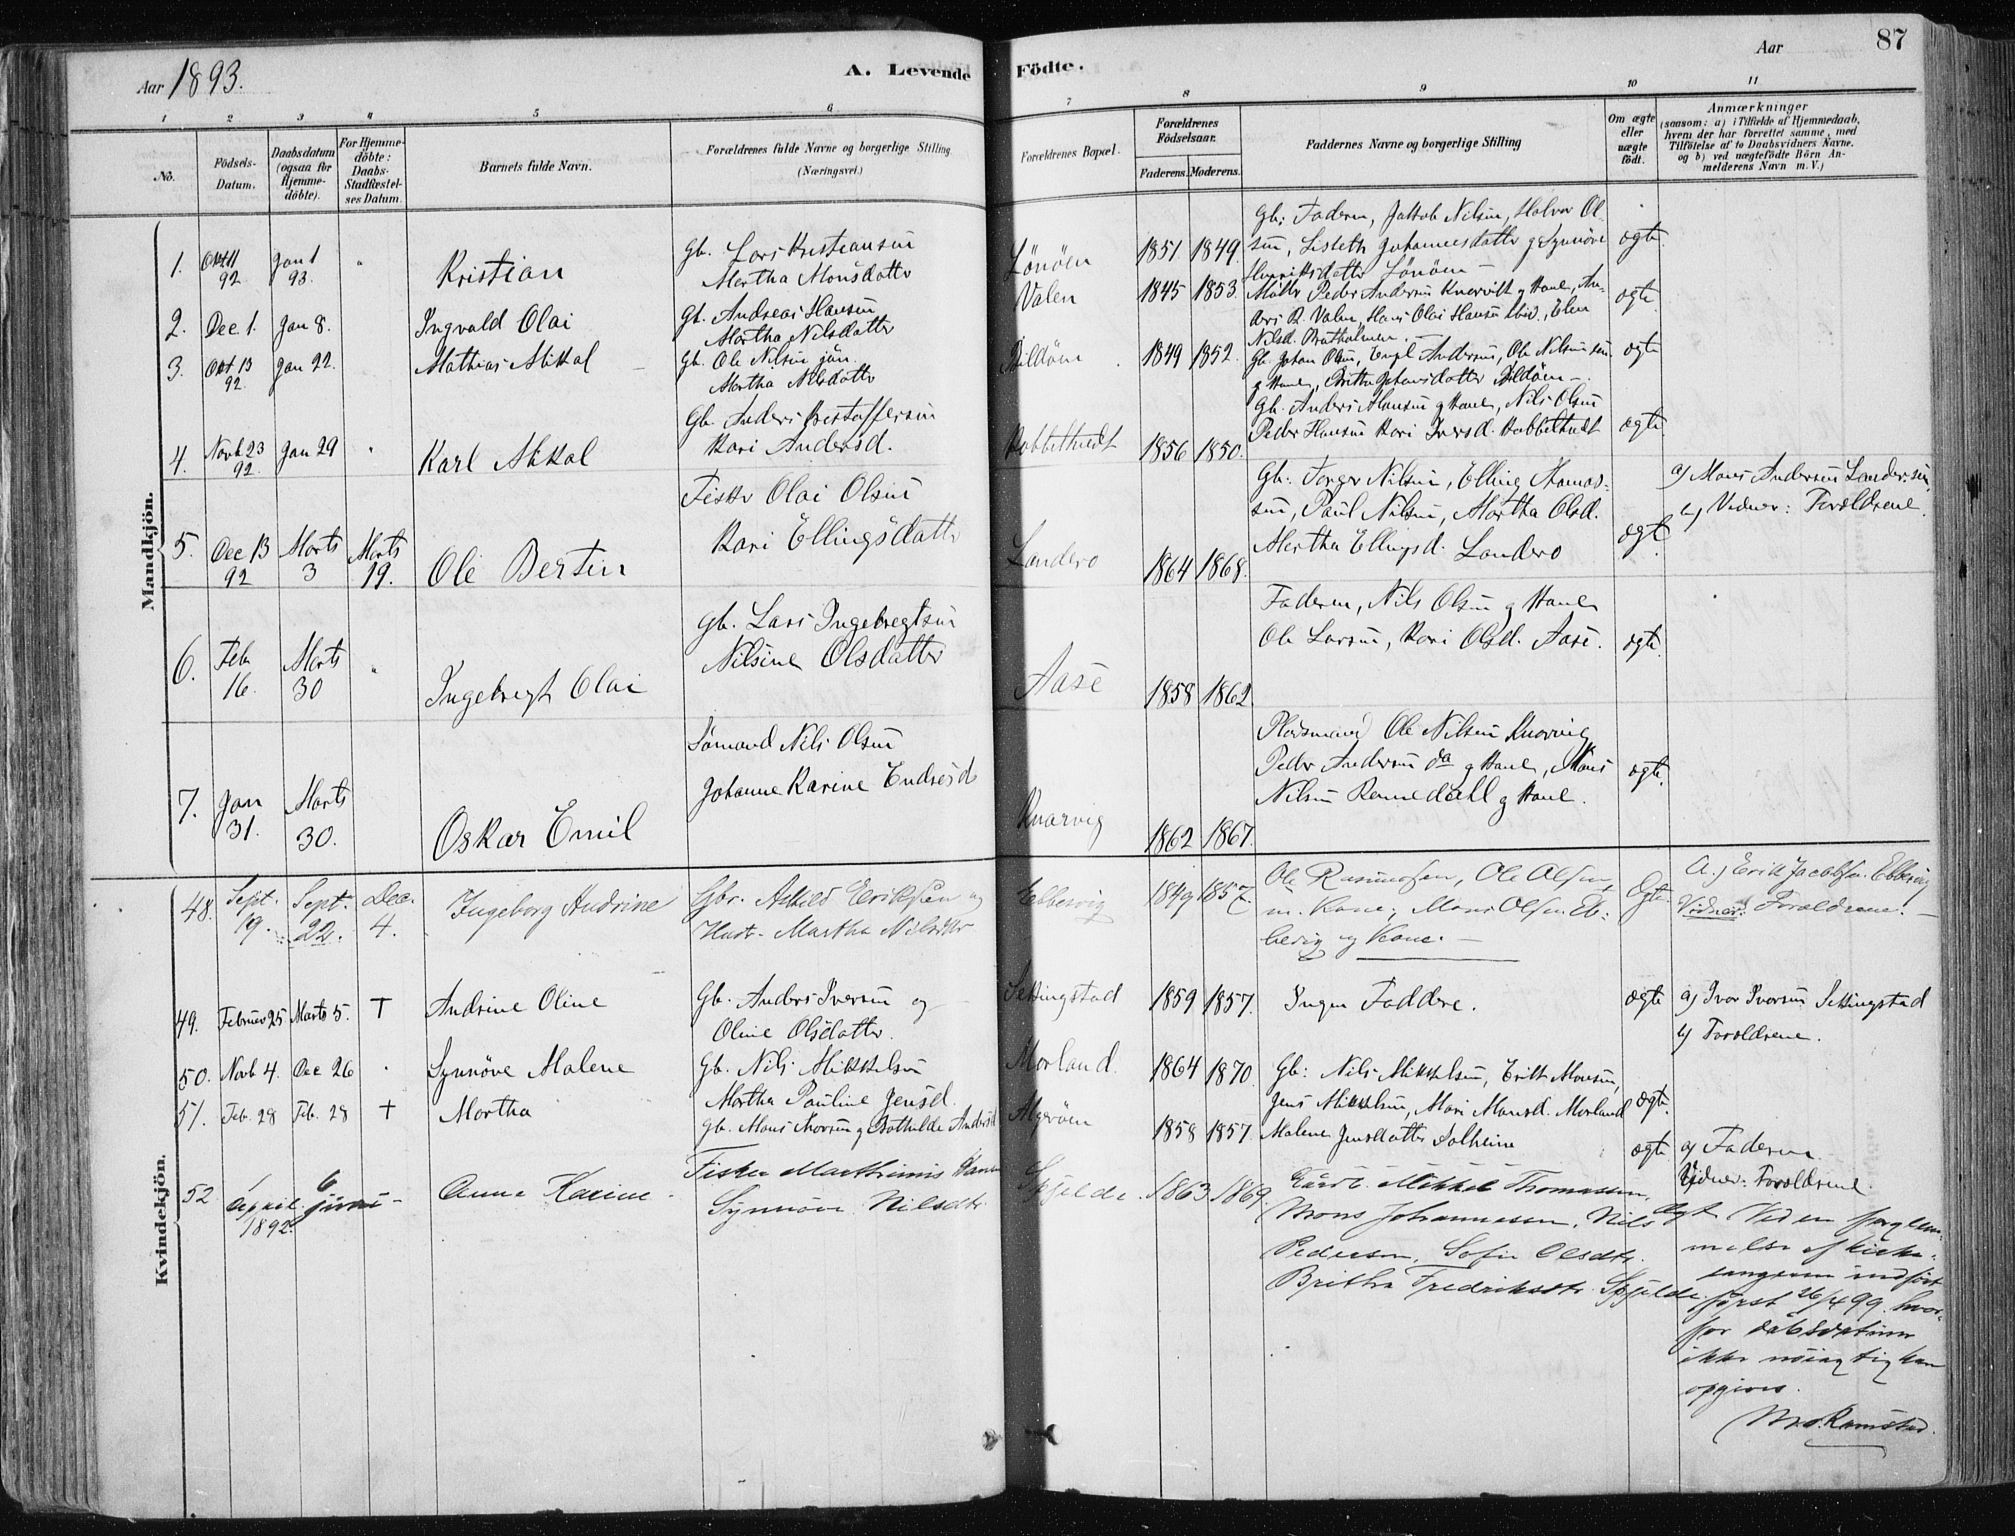 Aar 1893.
A. Levende Födte.
Aar
87
1 2 3 4 5 6 7 8 9 10 11
No.
Födsels-Datum.
Daabsdatum (ogsaa for Hjemme-döbte).
For Hjemme-döbte: Daabs-Stadfæstel-ses Datum.
Barnets fulde Navn.
Forældrenes fulde Navne og borgerlige Stilling (Næringsvei.)
Forældrenes Bopæl.
Forældrenes Födselsaar.
Faderens. Moderens.
Faddernes Navne og borgerlige Stilling
Om ægte eller uægte födt.
Anmærkninger
(saasom: a) i Tilfælde af Hjemmedaab, hvem der har forrettet samme, med Tilföielse af to Daabsvidners Navne. og b) ved uægtefödte Börn An-melderens Navn m. V.)
Mandkjön.
1. 92 Jan 1 93. " Kristian
Gb. Lars Kristiansen
Mertha Monsdatter
Lönöen 1851 1849.
Gb: Faderen, Jakob Nilsen, Halvor Ol-
sen, Lisbeth Johannesdatter g Synnöve
Lönöen
ægte.
2. Dec 1. Jan 8. Ingvald Olai
Gb. Andreas Hansen
Martha Nilsdatter
Valen 1845 1853.
Peder Andersen g Kone, An-
ders R. Valen, Hans Olai Hansen ibid., Elen
Nilsd.
ægte.
3. Okt 13 92 Jan 22. Mathias Mikal
Gb. Ole Nilsen jün.
Martha Nilsdatter
Bildöen 1849 1852.
Gb. Johan Olsen, Andersen, Ole Nilsen sen.
g Kone, Britha Johansdatter Bildöen
ægte
4. Novb 23 92. Jan 29 " Karl Mikal
Gb. Anders Kristoffersen
Kari Andersd.
1856 1850.
Gb. Anders Monsen g Kone, Nils Olsen
Peder Hansen Kari Iversd.
ægte
5. Dec 13 92 Marts 3 Marts 19. Ole Bertin
Fisker Olai Olsen
Kari Ellingsdatter
Landero 1864 1868.
Gb: Torger Nilsen, Elling
sen, Paul Nilsen, Martha Olsd.
Mertha Ellingsd. Landero
ægte.
a) Mons Andersen
b) Vidner: Forældrene.
6. Feb 16. Marts 30 " Ingebregt Olai
Gb. Lars Ingebregtsen
Nilsine Olsdatter
Aase 1858 1862
Faderen, Nils Olsen g Kone
Ole Larsen, Kari Olsd. Aase.
ægte.
7. Jan 31. Marts 30. Oskar Emil
Sömand Nils Olsen
Johanne Karine Endresd
Knarvig 1862 1867.
Pladsmand Ole Nilsen Knarvig
Peder Andersen do g Kone, Mons
Nilsen g Kone.
ægte.
Kvindekjön.
48. Sept. 19. Sept. 22. Dec. 4. Ingeborg Andrine
Gbr. Askild Eriksen og
Hust. Martha Nilsdtr
Ebbesvig 1849 1857.
Ole Rasmussen, Ole Olsen
m. Kone; Mons Olsen Eb-
besvig og Kone. —
Ægte.
a.) Erik Jacobsen. Ebbesvig
Vidner: Forældrene. —
49. Februar 25 Marts 5. † Andrine Oline
Gb. Anders Iversen og
Oline Olsdatter
Sekkingstad 1859 1857.
Ingen Faddere.
ægte
a) Ivar Iversen Sekkingstad
b) Forældrene.
50. Novb 4. Dec 26 " Synnöve Malene
Gb. Nils Mikkelsen
Martha Pauline Jensd.
Morland. 1864 1870.
Gb: Nils Mikkelsen, Erik Monsen,
Jens Mikkelsen, Mari Monsd. Morland
Malene Jensdatter Solheim
ægte.
51. Feb. 28 Feb. 28 † Martha
Gb. Mons Iversen g Bothilde Andersd
Algeröen 1858 1857.
ægte
a) Faderen.
Vidner: Forældrene.
52 1 April 1892. 6 juni — Anna Karine.
Fisker Marthinus Hansen
Synnöve Nilsdtr.
Spjelde. 1863 1869.
Gårdb. Mikkel Thomassen,
Mons Johannessen. Nils
Pedersen, Sofie Olsdtr.
Britha Fredriksdtr. Spjelde.
ægt.
Ved en forglem-
melse af kirke-
sangeren indfört
först 26/4 99. hvor-
for dåbsdatum
ikke nöiagtig kan
opgives.
Ramstad.